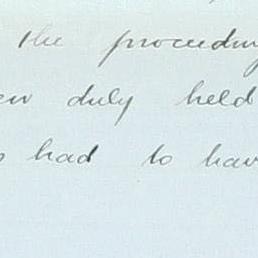 the proceeding
duly held
had to hav